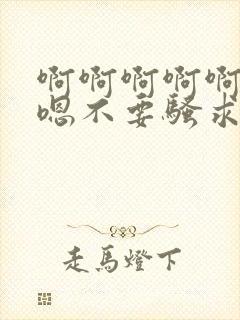 啊啊啊啊啊
嗯不要骚求
走馬燈下